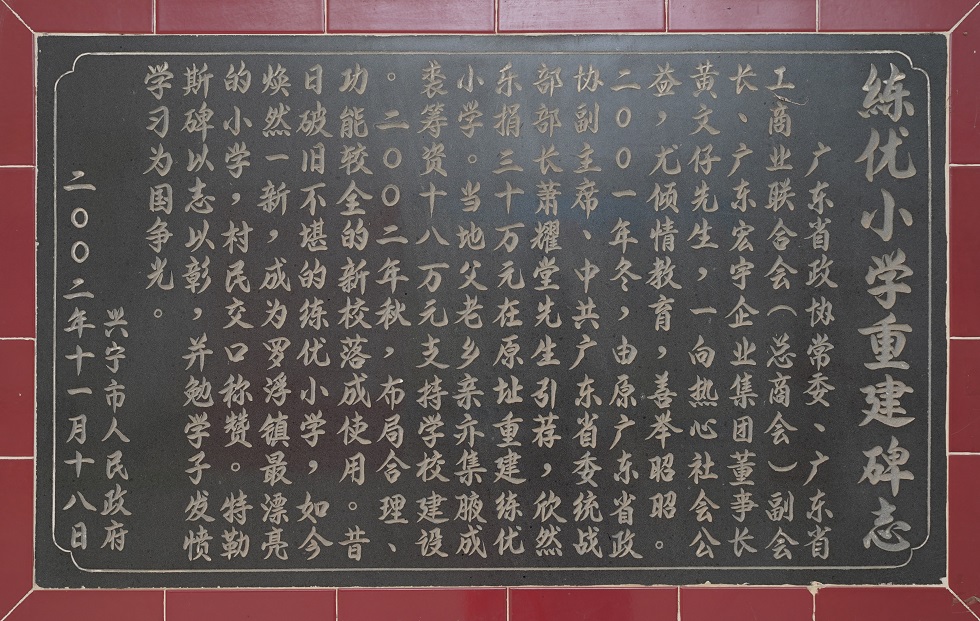 练优小学重建碑志
广东省政协常委、广东省
工商业联合会(总商会)副会
长、广东宏宇企业集团董事长
黄文仔先生,一向热心社会公
益,尤倾情教育,善举昭昭。
二00一年冬,由原广东省政
协副主席、中共广东省委统战
部部长萧耀堂先生引荐,欣然
乐捐三十万元在原址重建练优
小学。当地父老乡亲亦集腋成
裘筹资十八万元支持学校建设
。二00二年秋,布局合理、
功能较全的新校落成使用。昔
日破旧不堪的练优小学,如今
焕然一新,成为罗浮镇最漂亮
的小学,村民交口称赞。特勒
斯碑以志以彰,并勉学子发愤
学习为国争光。
兴宁市人民政府
二00二年十一月十八日